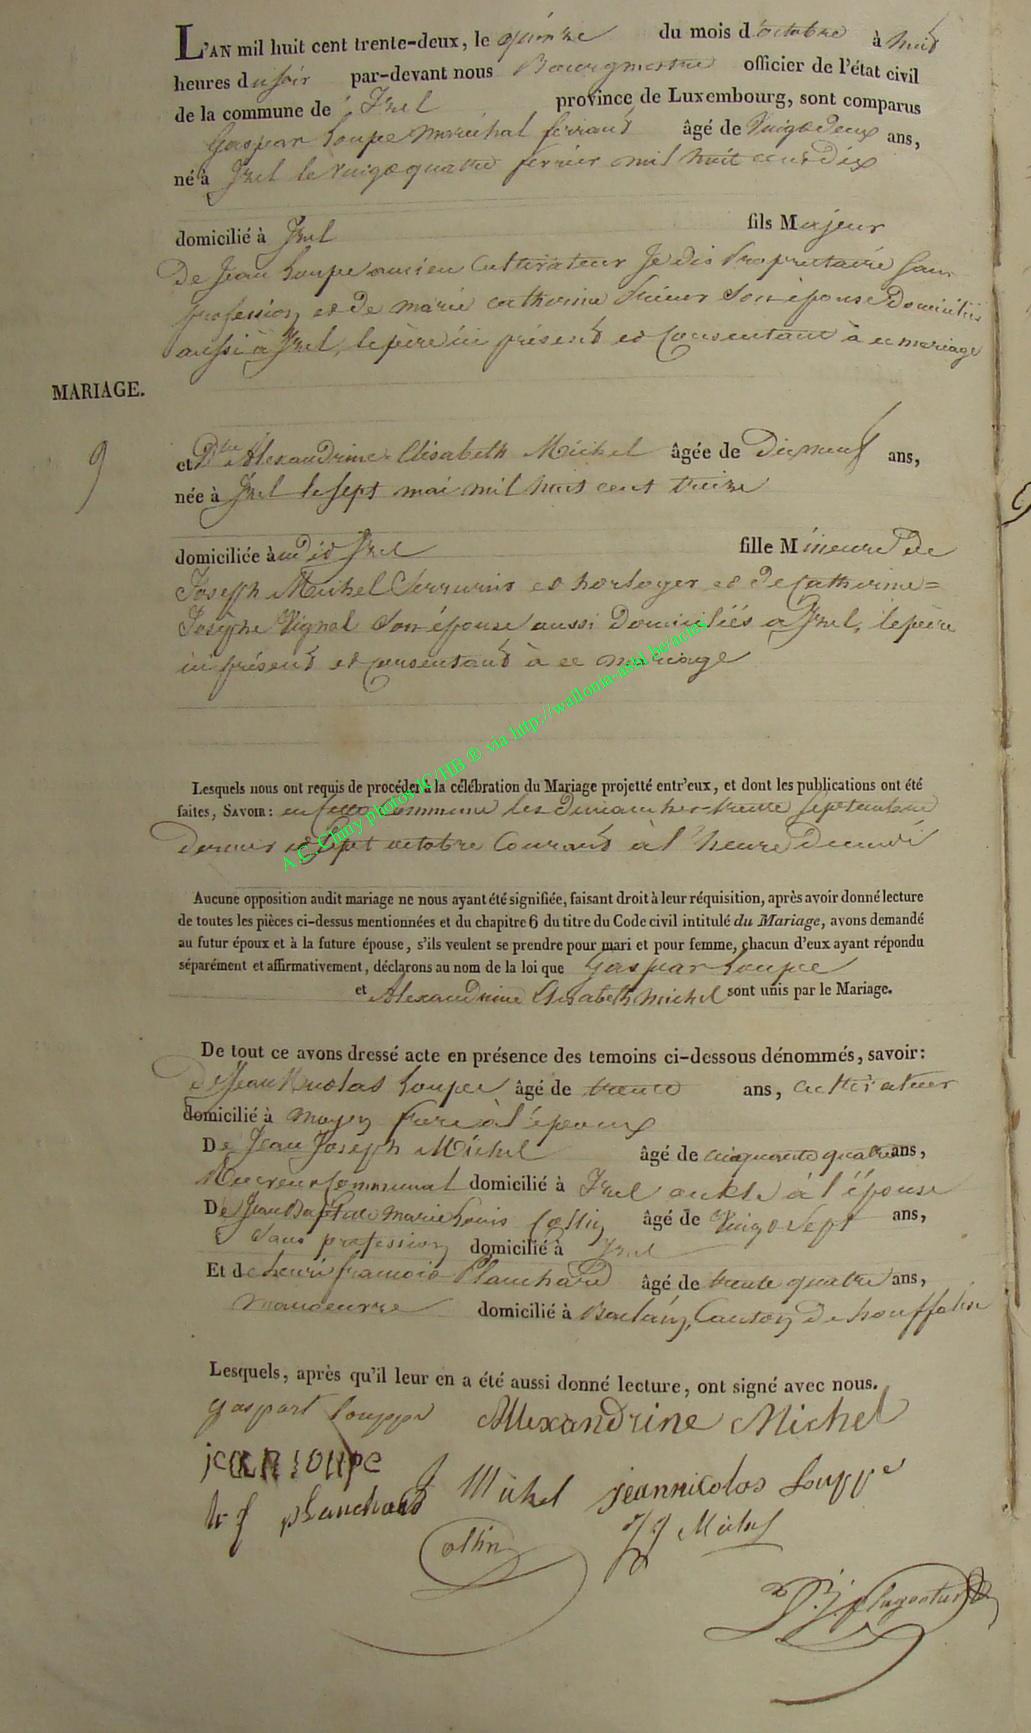 L'AN mil huit cent trente-deux, le quinze du mois d'octobre à huit
heures du soir par-devant nous Bourgmestre officier de l'état civil
de la commune de Izel province de Luxembourg, sont comparus
Gaspar Loupe maréchal ferrant âgé de vingt deux ans,
né à Izel le vingt quatre fevrier mil huit cent dix
domicilié à Izel fils Majeur
De Jean Loupe ancien Cultivateur Je dis Propriétaire sans
profession et de marie catherine son épouse Domiciliés
aussi à Izel, le père ici présent et Consentant à ce mariage
MARIAGE.
9
et Dlle Alexandrine Elisabeth Michel âgée de Dix neuf ans,
née à Izel le sept mai mil huit cent treize
domiciliée audit Izel fille Mineure de
Joseph Michel Serrurier et horloger et de Catherine=
Josephe Vignol Son épouse aussi Domiciliés à Izel, le père
ici présent et consentant à ce mariage
Lesquels nous ont requis de procéder à la célébration du Mariage projetté entr'eux, et dont les publications ont été
faites, SAVOIR: en cette Commune les Dimanches trente septembre
Dernier et sept octobre Courant à l'heure De midi
Aucune opposition audit mariage ne nous ayant été signifiée, faisant droit à leur réquisition, après avoir donné lecture
de toutes les pièces ci-dessus mentionnées et du chapitre 6 du titre du Code civil intitulé du Mariage, avons demandé
au futur époux et à la future épouse, s'ils veulent se prendre pour mari et pour femme, chacun d'eux ayant répondu
séparément et affirmativement, déclarons au nom de la loi que Gaspar Loupe
et Alexandrine Elisabeth Michel sont unis par le Mariage.
De tout ce avons dressé acte en présence des temoins ci-dessous dénommés, savoir:
De Jean Nicolas Loupe âgé de trente ans, cultivateur
domicilié à moyen frere à l'époux
De Jean Joseph Michel âgé de cinquante quatre ans,
Receveur Communal domicilié à Izel oncle à l'épouse
De Jean Baptiste Marie Louis Collin âgé de vingt sept ans,
Sans profession domicilié à Izel
Et de henri francois Planchard âgé de trente quatre ans,
manoeuvre domicilié à Canton De houffalise
Lesquels, après qu'il leur en a été aussi donné lecture, ont signé avec nous.
gaspart Louppe Allexandrine Michel
jean loupe J Michel jeannicolas Louppe
h f planchard JJ Michel
Collin
A.C. Chiny photos JC/HB ® via http://wallonia-asbl.be/actes